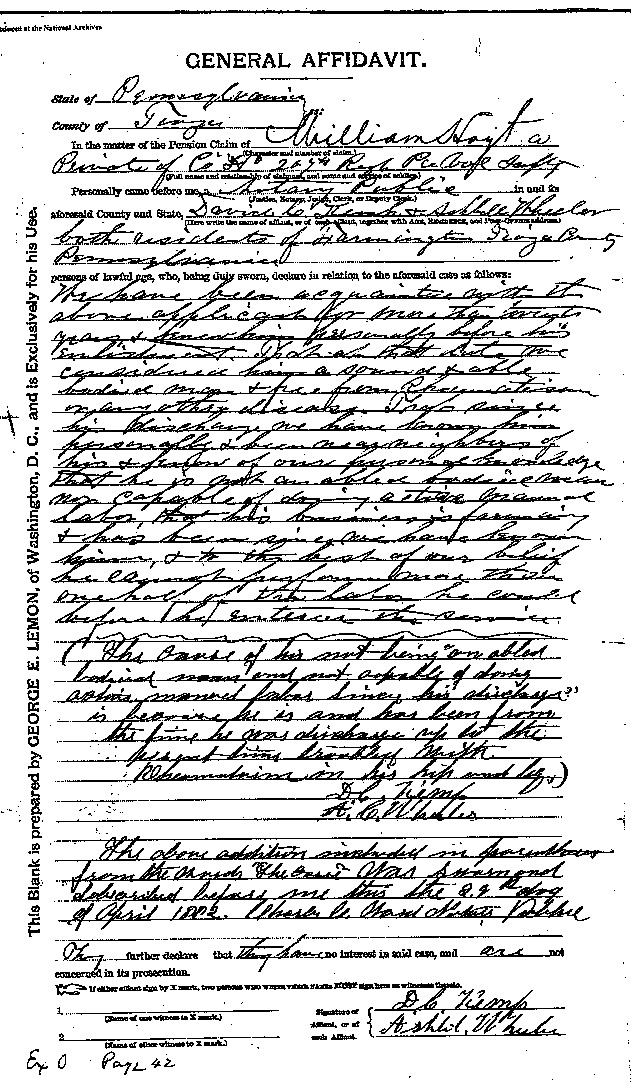 at the National Archives
GENERAL AFFIDAVIT.
State of Pennsylvania
County of Tioga ss:
In the matter of the Pension Claim of William Hoyt a
(Character and number of claim.)
Private of Co 207th Regt Pa Vol Infty
(Full name and relationship of claimant, and name and service of soldier.)
Personally came before me, a Notary Public in and for
(Justice, Notary, Judge, Clerk, or Deputy Clerk.)
aforesaid County and State, David C. Kemp & Wheeler
(Here write the name of affiant, or of each affiant, together with Age, Residence, and Post-Office address)
both residents of Farmington Tioga County
Pennsylvania
persons of lawful age, who, being duly sworn, declare in relation to the aforesaid case as follows:
We have been acquainted with the
above applicant for more than twenty
years & knew him personally before his
enlistment. that at that date we
considered him a sound & able
bodied man & free from Rheumatism
or any other disease. That since
his discharge we have known him
personally & been near neighbors of
his & know of our personal knowledge
that he is not an abled bodied man
nor capable of doing active manual
labor, that his business is farming
& has been since we have known
him, & to the best of our belief
he cannot perform more than
one half of the labor he could
before he entered the service
(The cause of his not being "an abled
bodied man and not capable of doing
active manual labor since his discharge"
is because he is and has been from
the time he was discharge up to the
present time troubled with
Rheumatism in his hip and legs)
D C Kemp
A. C. Wheeler
The above addition included in parentheses
from the words "The cause" was sworn and
subscribed before me this the 22nd day
of April 1882. Charles C Ward Notary Public
They further declare that they have no interest in said case, and are not
concerned in its prosecution.
If either affiant sign by X mark, two persons who write must sign here as witnesses thereto.
1.
(Name of one witness to X mark.)
2
(Name of other witness to X mark.)
Signature of
Affiant, or of
each Affiant.
D C Kemp
Wheeler
Ex O Page 42
This Blank is prepared by GEORGE E. LEMON, of Washington, D. C., and is Exclusively for his Use.